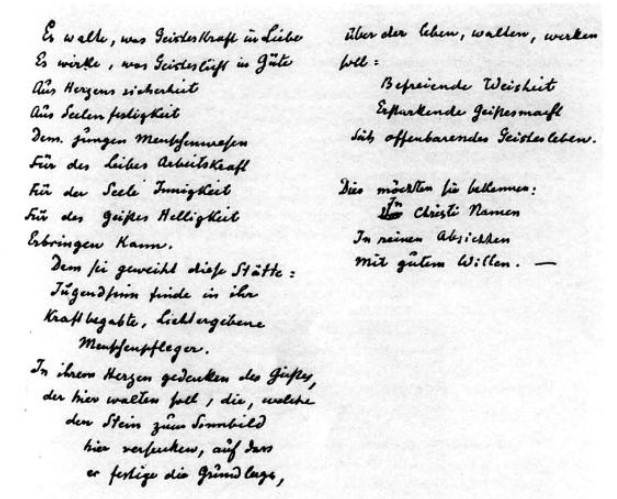 Es walte, was Geisteskraft in Liebe
Es wirke, was Geisteslicht in Güte
Aus Herzens sicherheit
Aus Seelenfestigkeit
Dem jungen Menschenwesen
Für des Leibes Arbeitskraft
Für der Seele Innigkeit
Für des Geistes Helligkeit
Erbringen kann.
Dem sei geweiht diese Stätte:
Jugendsinn finde in ihr
Kraftbegabte, Lichtergebene
Menschenpfleger.
In ihrem Herzen gedenken des Geistes,
der hier walten soll, die, welche
den Stein zum Sinnbild
hier versenken, auf dass
er festige die Grundlage,
über der leben, walten, wirken
soll:
Befreiende Weisheit
Erstarkende Geistesmacht
Sich offenbarendes Geistesleben.
Dies möchten sie bekennen:
In Christi Namen
In reinen Absichten
Mit gutem Willen. —